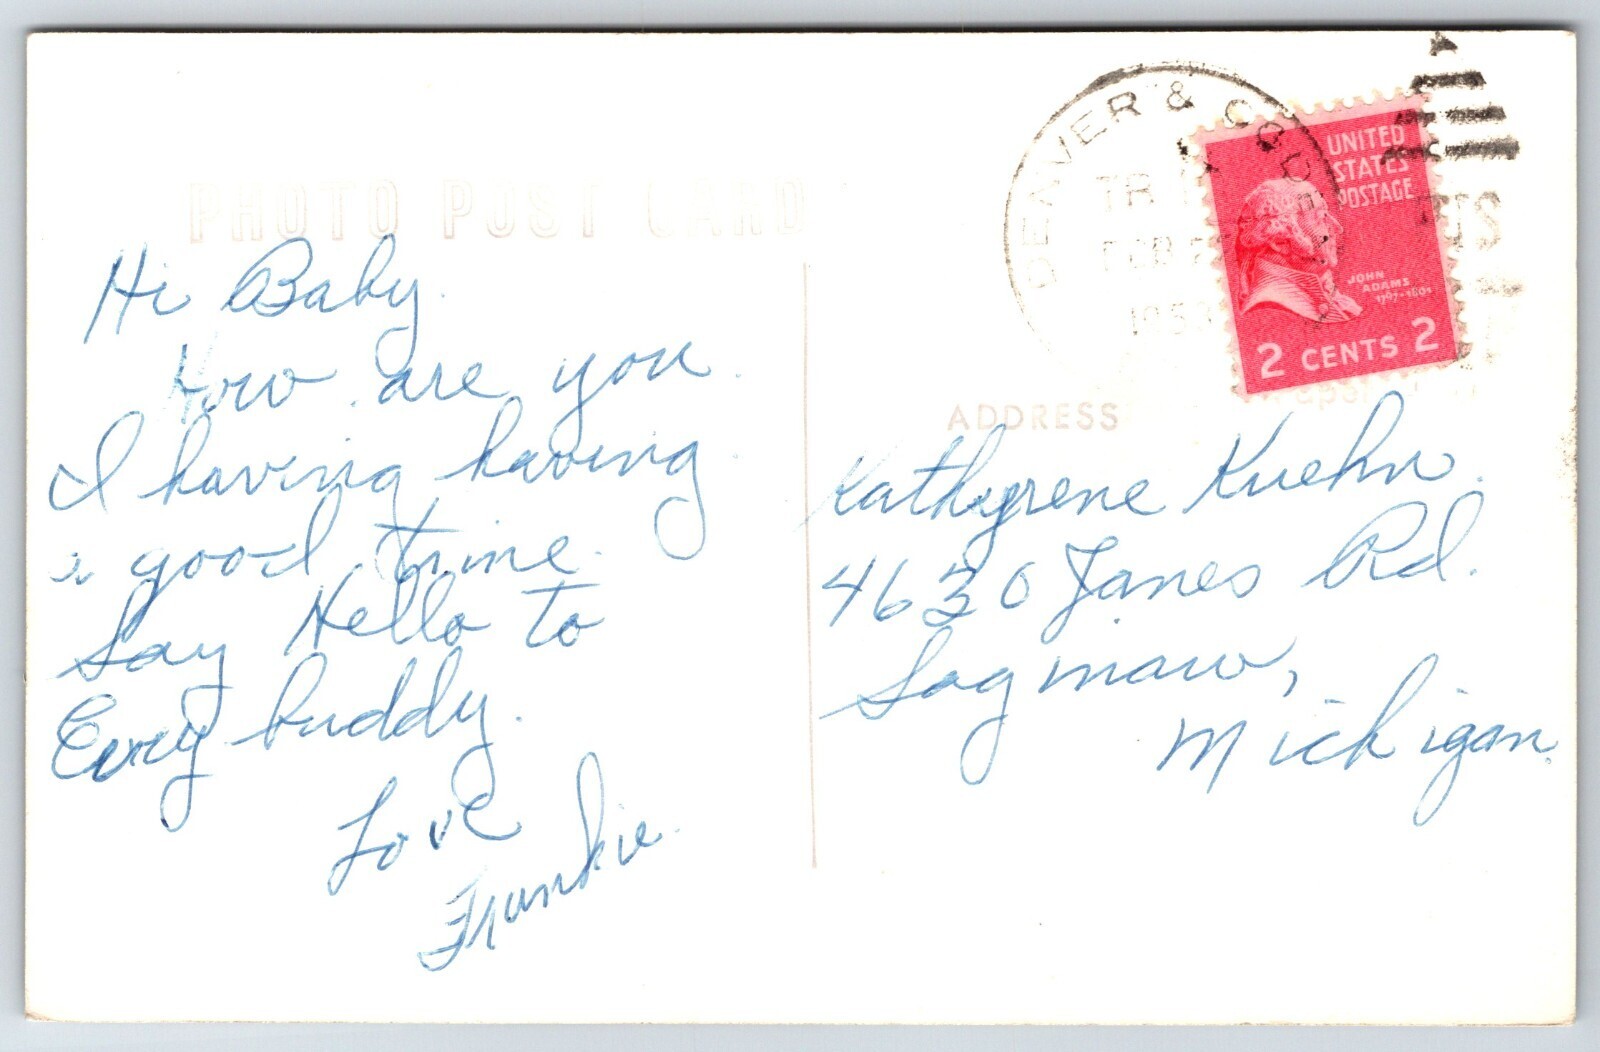 PHOTO POST CARD
Hi Baby.
How are you.
I having having
a good trine.
Say Hello to
Every buddy.
Love
Frankie.
DEAVER &
TR 1
FEB
1953
UNITED
STATES
POSTAGE
JOHN
ADAMS
1797-1801
2 CENTS 2
ADDRESS
Kathyrene Kuehn.
4630 Janes Rd.
Sagmaw,
Michigan.